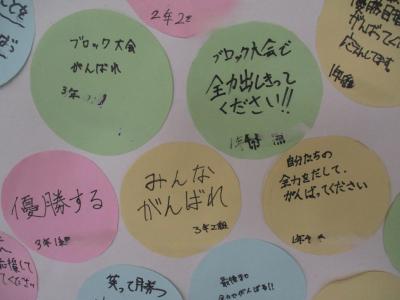 2年2き
ブロック大会
がんばれ
3年
ブロック大会で
全力出しきって
ください!!
1年
がんばって
優勝する
3年1組
みんな
がんばれ
3年2組
自分たちの
全力をだして、
がんばってください
1年
応援して
笑って勝つ
最後まで